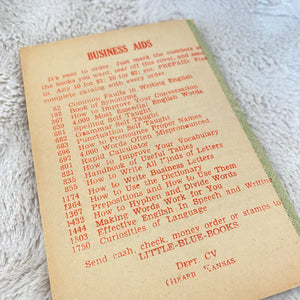 BUSINESS AIDS
It's easy to order. Just mark the numbers of
the books you want, tear off this cover, and send
in. Any 10 for $1; 20 for $2, etc. PREPAID. Free
complete catalog with every order.
82 Common Faults in Writing English
192 Book of Synonyms
Improve Your Conversation
4,000 Most Essential English Words
639 Spelling Self Taught
681 Grammar Self Taught
683 Punctuation Self Taught
696 How to Pronounce Proper Names
697 4,000 Words Often Mispronounced
Rapid Calculator
821 How to Improve Your Vocabulary
Handbook of Useful Tables
831 How to Write All Kinds of Letters
835 How to Write Business Letters
855 How to Use the Dictionary
1174 How to Write and How to Use Them
1264 Prepositions and How to Use Them
1367 How to Hyphen and Divide Words
1432 Making Words Work for You
1444 Effective English in Speech and Writing
1503 Curiosities of Language
1750
Send cash, check, money order or stamps to
LITTLE-BLUE-BOOKS
DEPT CV
GIRARD KANSAS